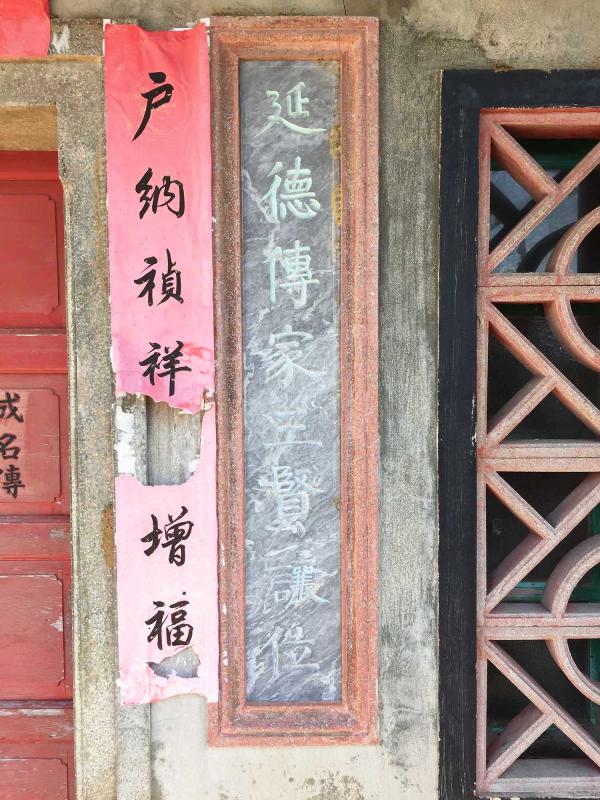 延德傳家三賢讓位
戶納禎祥 增福
成名傳